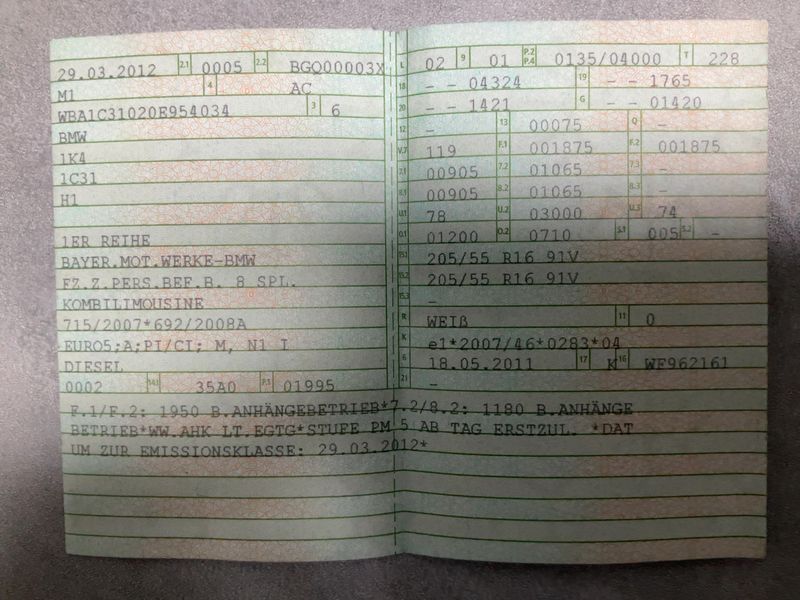 29.03.2012 2.1 0005 2.2 BGQ00003X
M1 4 AC
WBA1C31020E954034 3 6
BMW
1K4
1C31
H1
1ER REIHE
BAYER.MOT.WERKE-BMW
FZ.Z.PERS.BEF.B. 8 SPL.
KOMBILIMOUSINE
715/2007*692/2008A
EURO5;A;PI/CI; M, N1 I
DIESEL
0002 14.1 35A0 P.1 01995
L 02 9 01 P.2 P.4 0135/04000 T 228
18 - - 04324 19 - - 1765
20 - - 1421 G - - 01420
12 - 13 00075 Q -
V.7 119 F.1 001875 F.2 001875
7.1 00905 7.2 01065 7.3 -
8.1 00905 8.2 01065 8.3 -
U.1 78 U.2 03000 U.3 74
O.1 01200 O.2 0710 S.1 005 S.2 -
15.1 205/55 R16 91V
15.2 205/55 R16 91V
15.3 -
R WEIß 11 0
K e1*2007/46*0283*04
6 18.05.2011 17 K 16 WF962161
21 -
F.1/F.2: 1950 B.ANHÄNGEBETRIEB*7.2/8.2: 1180 B.ANHÄNGE
BETRIEB*WW.AHK LT.EGTG*STUFE PM 5 AB TAG ERSTZUL. *DAT
UM ZUR EMISSIONSKLASSE: 29.03.2012*